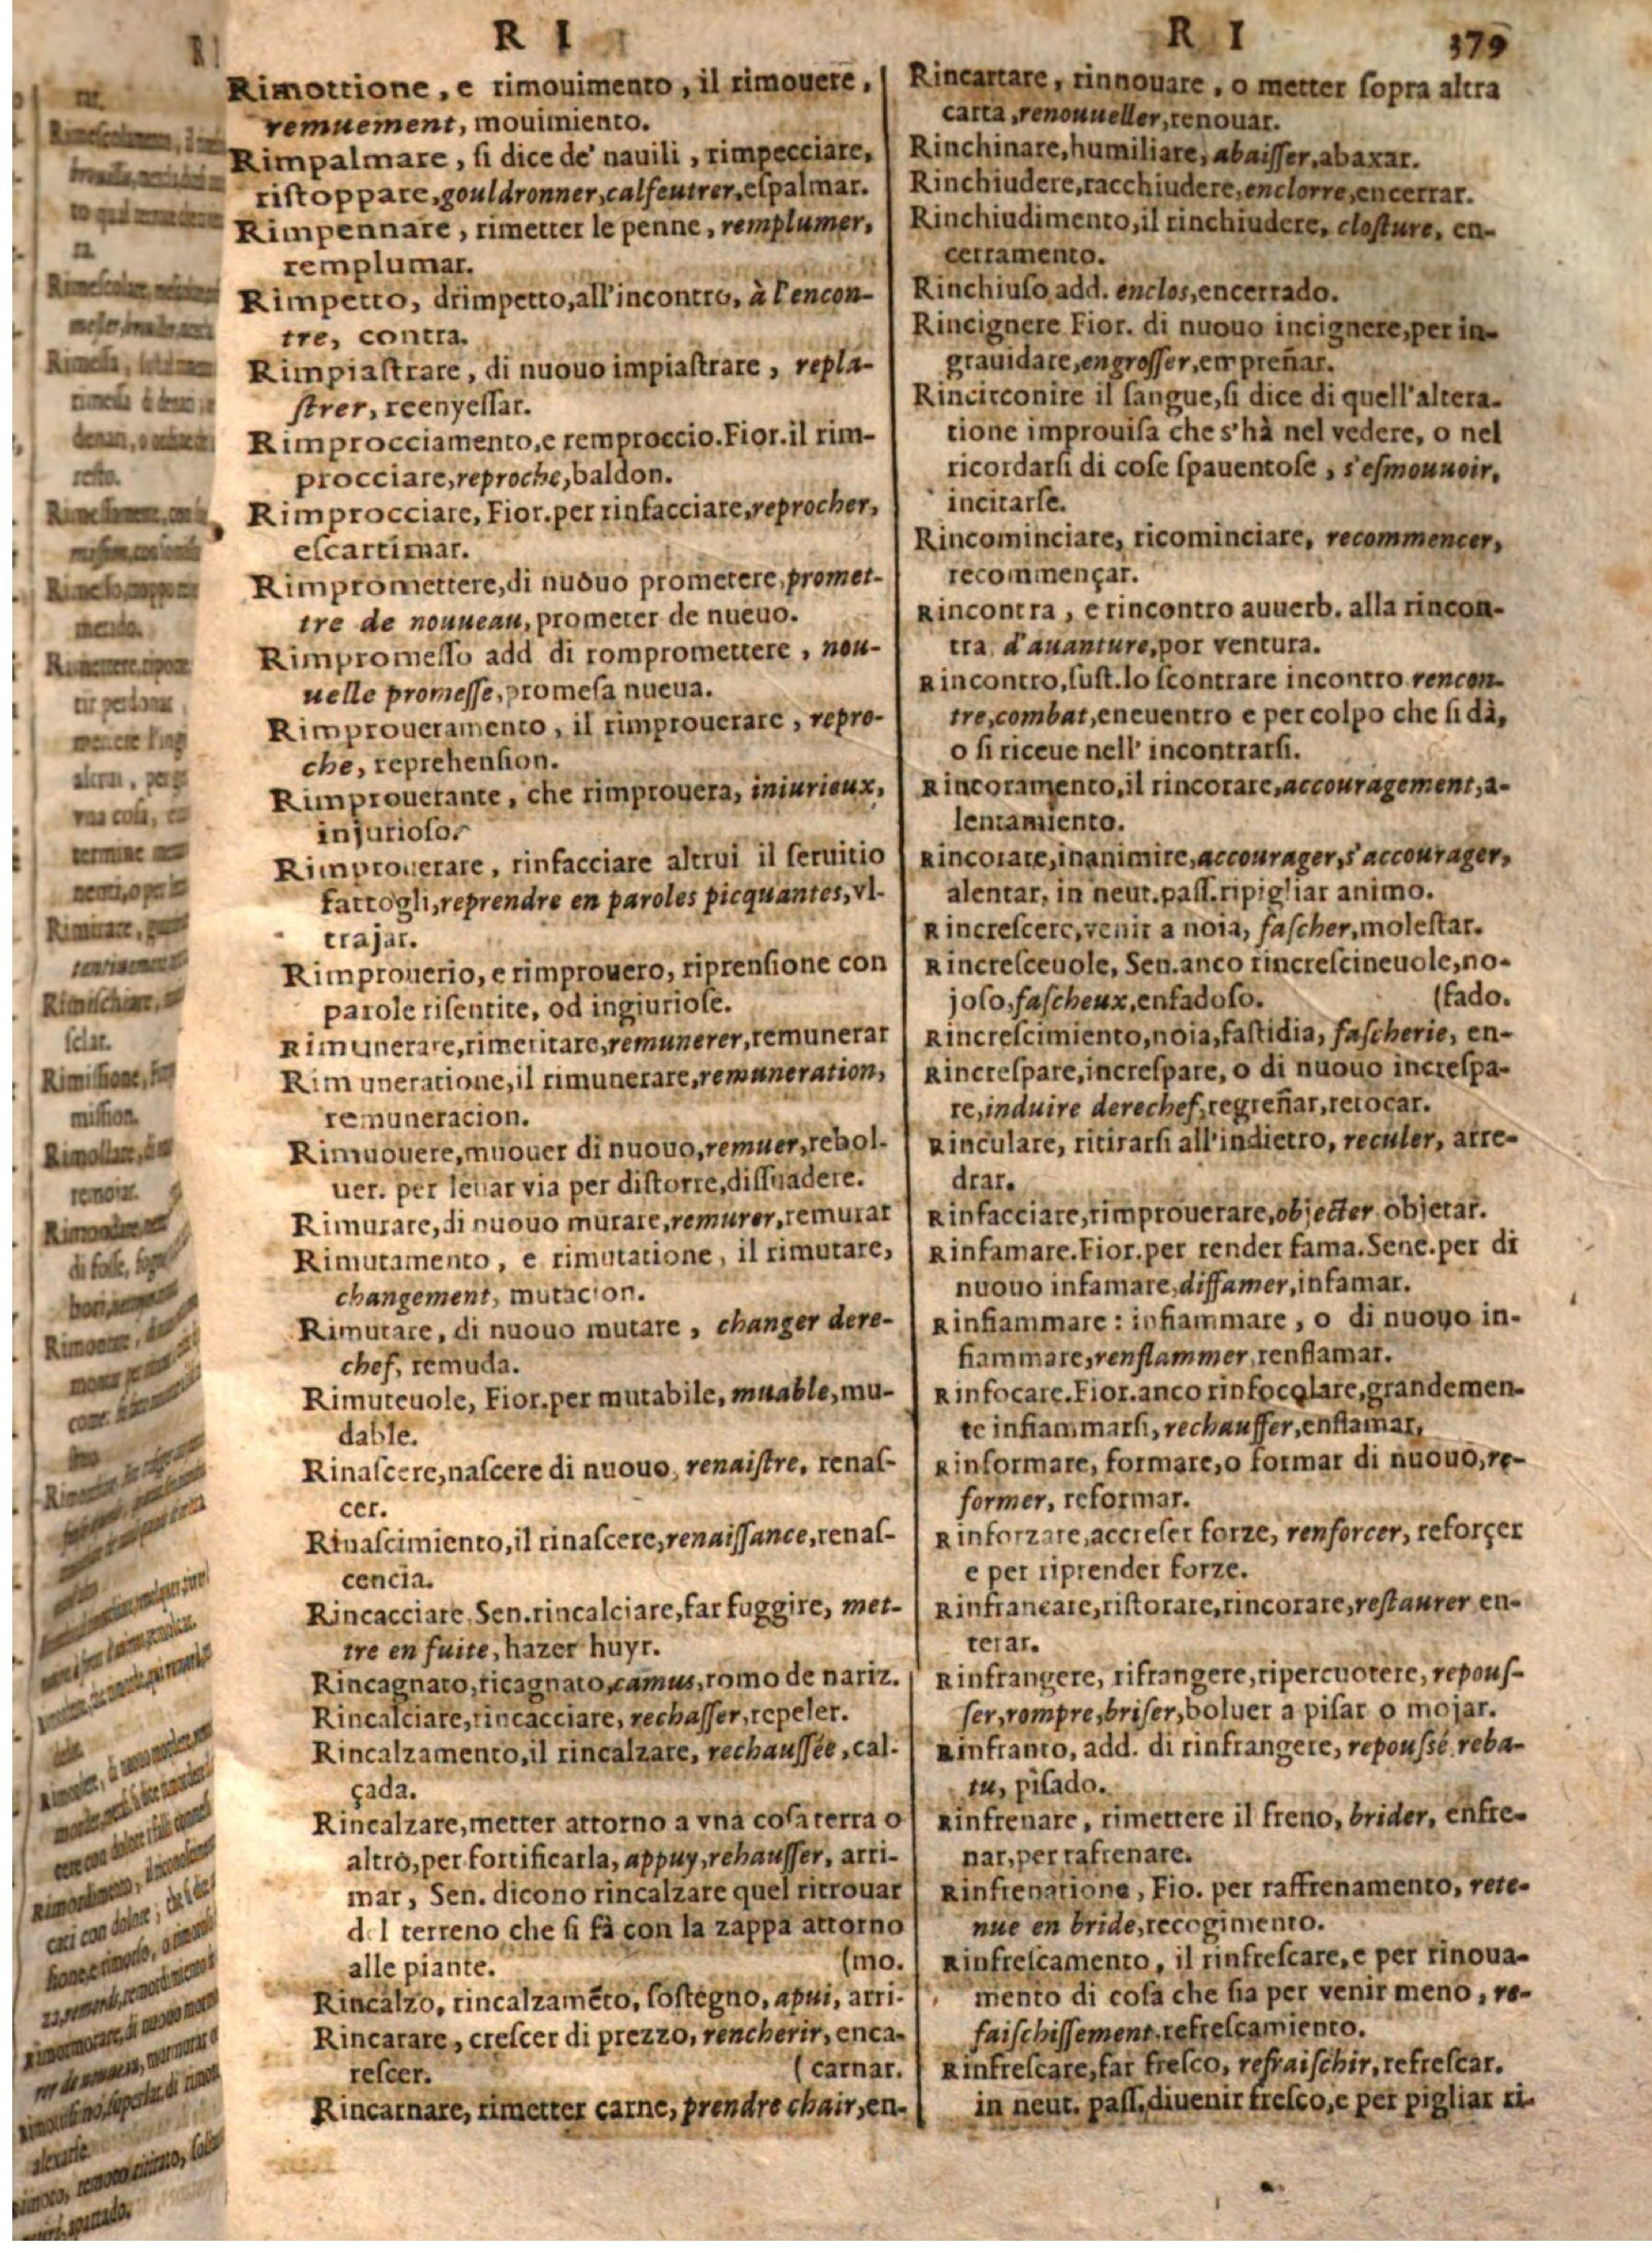 R I
Rimottione, e rimouimento, il rimouere,
remuement, mouimiento.
Rimpalmare, ſi dice de' nauili, rimpecciare,
riſtoppare, gouldronner, calfeutrer, eſpalmar.
Rimpennare, rimetter le penne, remplumer,
remplumar.
Rimpetto, drimpetto, all'incontro, à l'encon-
tre, contra.
Rimpiaſtrare, di nuouo impiaſtrare, repla-
ſtrer, reenyeſſar.
Rimprocciamento, e remproccio. Fior. il rim-
procciare, reproche, baldon.
Rimprocciare, Fior. per rinfacciare, reprocher,
eſcartimar.
Rimpromettere, di nuouo prometere, promet-
tre de nouueau, prometer de nueuo.
Rimpromeſſo add di rompromettere, nou-
uelle promeſſe, promeſa nueua.
Rimproueramento, il rimprouerare, repro-
che, reprehenſion.
Rimprouerante, che rimprouera, iniurieux,
injurioſo.
Rimprouerare, rinfacciare altrui il ſeruitio
fattogli, reprendre en paroles picquantes, vl-
trajar.
Rimprouerio, e rimprouero, riprenſione con
parole riſentite, od ingiurioſe.
Rimunerare, rimeritare, remunerer, remunerar
Rimuneratione, il rimunerare, remuneration,
remuneracion.
Rimuouere, muouer di nuouo, remuer, rebol-
uer. per leuar via per diſtorre, diſſuadere.
Rimurare, di nuouo murare, remurer, remurar
Rimutamento, e rimutatione, il rimutare,
changement, mutacion.
Rimutare, di nuouo mutare, changer dere-
chef, remuda.
Rimuteuole, Fior. per mutabile, muable, mu-
dable.
Rinaſcere, naſcere di nuouo, renaiſtre, renaſ-
cer.
Rinaſcimiento, il rinaſcere, renaiſſance, renaſ-
cencia.
Rincacciare Sen. rincalciare, far fuggire, met-
tre en fuite, hazer huyr.
Rincagnato, ricagnato, camus, romo de nariz.
Rincalciare, rincacciare, rechaſſer, repeler.
Rincalzamento, il rincalzare, rechauſſée, cal-
çada.
Rincalzare, metter attorno a vna coſa terra o
altro, per fortificarla, appuy, rehauſſer, arri-
mar, Sen. dicono rincalzare quel ritrouar
del terreno che ſi fà con la zappa attorno
alle piante. (mo.
Rincalzo, rincalzamẽto, ſoſtegno, apui, arri-
Rincarare, creſcer di prezzo, rencherir, enca-
reſcer. (carnar.
Rincarnare, rimetter carne, prendre chair, en-
R I 379
Rincartare, rinnouare, o metter ſopra altra
carta, renouueller, renouar.
Rinchinare, humiliare, abaiſſer, abaxar.
Rinchiudere, racchiudere, enclorre, encerrar.
Rinchiudimento, il rinchiudere, cloſture, en-
cerramento.
Rinchiuſo, add. enclos, encerrado.
Rincignere Fior. di nuouo incignere, per in-
grauidare, engroſſer, empreñar.
Rincirconire il ſangue, ſi dice di quell'altera-
tione improuiſa che s'hà nel vedere, o nel
ricordarſi di coſe ſpauentoſe, s'eſmouuoir,
incitarſe.
Rincominciare, ricominciare, recommencer,
recommençar.
Rincontra, e rincontro auuerb. alla rincon-
tra, d'auanture, por ventura.
Rincontro, ſuſt. lo ſcontrare incontro rencon-
tre, combat, encuentro e per colpo che ſi dà,
o ſi riceue nell' incontrarſi.
Rincoramento, il rincorare, accouragement, a-
lentamiento.
Rincorare, inanimire, accourager, s'accourager,
alentar, in neut. paſſ. ripigliar animo.
Rincreſcere, venir a noia, faſcher, moleſtar.
Rincreſceuole, Sen. anco rincreſcineuole, no-
joſo, faſcheux, enfadoſo. (fado.
Rincreſcimiento, noia, faſtidia, faſcherie, en-
Rincreſpare, increſpare, o di nuouo increſpa-
re, induire derechef, regreñar, retocar.
Rinculare, ritirarſi all'indietro, reculer, arre-
drar.
Rinfacciare, rimprouerare, objecter objetar.
Rinfamare. Fior. per render fama. Sene. per di
nuouo infamare, diffamer, infamar.
Rinfiammare: infiammare, o di nuouo in-
fiammare, renflammer, renflamar.
Rinfocare. Fior. anco rinfocolare, grandemen-
te infiammarſi, rechauffer, enflamar,
Rinformare, formare, o formar di nuouo, re-
former, reformar.
Rinforzare, accreſer forze, renforcer, reforçer
e per riprender forze.
Rinfrancare, riſtorare, rincorare, reſtaurer en-
terar.
Rinfrangere, rifrangere, ripercuotere, repouſ-
ſer, rompre, briſer, boluer a piſar o mojar.
Rinfranto, add. di rinfrangere, repouſsé, reba-
tu, piſado.
Rinfrenare, rimettere il freno, brider, enfre-
nar, per rafrenare.
Rinfrenatione, Fio. per raffrenamento, rete-
nue en bride, recogimento.
Rinfreſcamento, il rinfreſcare, e per rinoua-
mento di coſa che ſia per venir meno, re-
faiſchiſſement, refreſcamiento.
Rinfreſcare, far freſco, refraiſchir, refreſcar.
in neut. paſſ. diuenir freſco, e per pigliar ri-